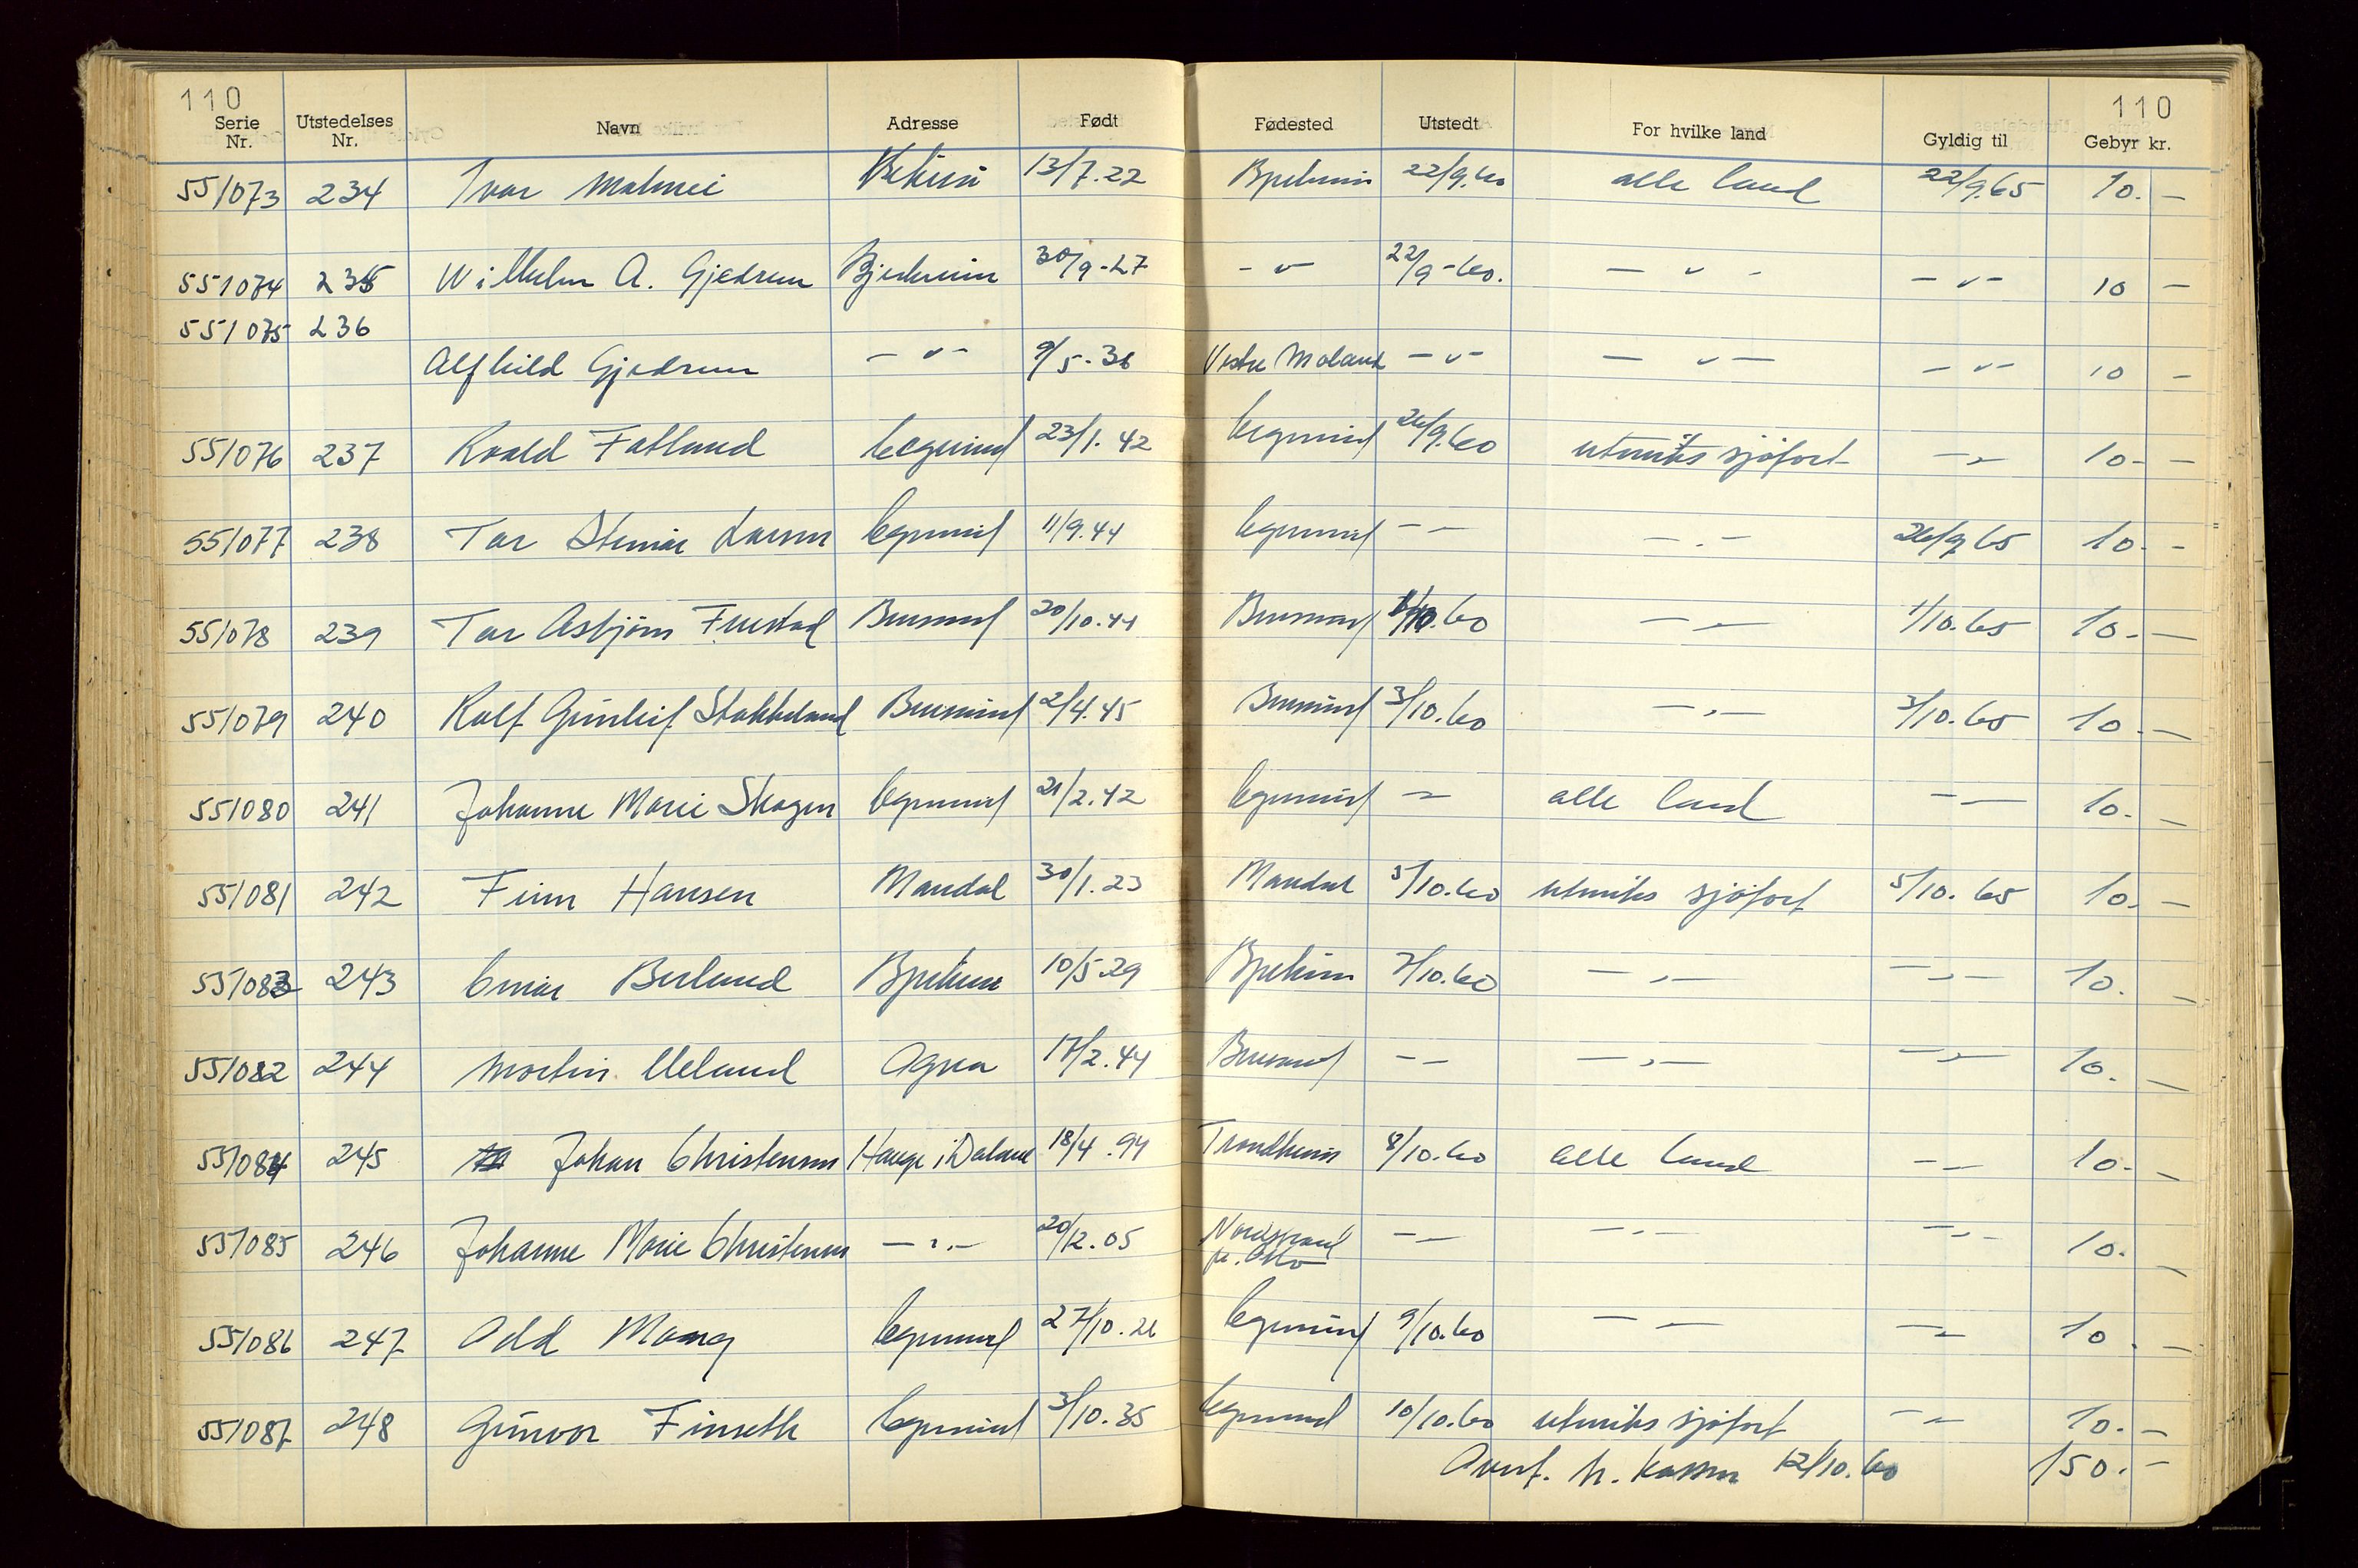 110 110
Serie Nr. Utstedelses Nr. Navn Adresse Født Fødested Utstedt For hvilke land Gyldig til Gebyr kr.
551073 234 Ivar 13/7.22 22/9.60 alle land 22/9.65 10. —
551074 235 Wilhelm A. Gjedrem Bjerkreim 30/9-27 - " - 22/9-60. — " - — " - 10 —
551075 236
Alfhild Gjedrem — " - 9/5-36 Vestre Moland — " - — " — — " — 10 —
551076 237 Roald Fatland Egersund 23/1.42 Egersund 26/9.60 utenriks sjøfart — " — 10- —
551077 238 Tor Steinar Larsen Egersund 11/9.44 Egersund — — — . — 26/9 65 10. -
551078 239 Tor Asbjørn Brusand 20/10.44 Brusand 1/10.60 — — 1/10.65 10. —
551079 240 Rolf Gunleif Stokkeland Brusand 2/4.45 Brusand 3/10.60 — , — 3/10.65 10. —
551080 241 Johanne Marie Skogen Egersund 21/2.42 Egersund — " — alle land — — 10. —
551081 242 Finn Hansen Mandal 30/1.23 Mandal 5/10.60 utenriks sjøfart 5/10.65 10. —
551083 243 Einar Berland Bjerkreim 10/5.29 Bjerkreim 7/10.60 — , — — , — 10. —
551082 244 Martin Ueland Ogna 17/2.44 Brusand — — — , — — , — 10. —
551084 245 Johan Christensen Hauge i Dalane 18/4.94 Trondheim 8/10.60 alle land — — 10. —
551085 246 Johanne Marie Christensen — " — 20/12.05 Nordstrand — — — . — — , — 10. —
pr. Oslo
551086 247 Odd Mong Egersund 27/10.26 Egersund 9/10.60 — — — — 10. —
551087 248 Gunvor Finseth Egersund 3/10.35 Egersund 10/10.60 utenriks sjøfart — — 10. —
Overf. h. kassen 12/10.60 150. —